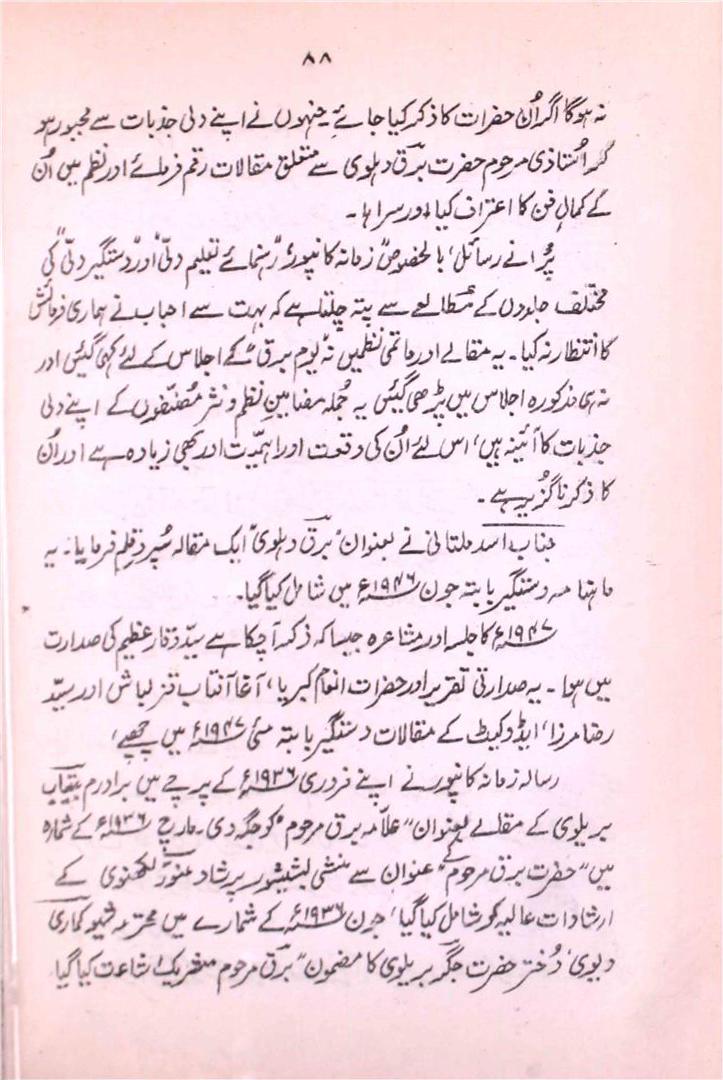 ۸۸
نہ ہوگا اگر اُن حضرات کا ذکر کیا جائے۔ جنہوں نے اپنے دلی جذبات سے مجبور ہو
کر اُستاذی مرحوم حضرت برقؔ دہلوی سے متعلق مقالات رقم فرمائے اور نظم میں اُن
کے کمالِ فن کا اعتراف کیا اور سراہا۔
پُرانے رسائل، بالخصوص "زمانہ کانپور"، "رہنمائے تعلیم دلّی" اور "دستگیر دلّی" کی
مختلف جلدوں کے مطالعے سے پتہ چلتا ہے کہ بہت سے احباب نے ہماری فرمائش
کا انتظار نہ کیا۔ یہ مقالے اور ماتمی نظمیں نہ "یوم برق" کے اجلاس کے لئے کہی گئیں اور
نہ ہی مذکورہ اجلاس میں پڑھی گئیں یہ جُملہ مضامینِ نظم و نثر مصنّفوں کے اپنے دلی
جذبات کا آئینہ ہیں، اس لئے اُن کی وقعت اور اہمیّت اور بھی زیادہ ہے اور اُن
کا ذکر ناگزیر ہے۔
جناب اسدؔ ملتانی نے بعنوان "برقؔ دہلوی" ایک مقالہ سپردِ قلم فرمایا۔ یہ
ماہنامہ دستگیر بابتہ جون ۱۹۴۶ء میں شامل کیا گیا۔
۱۹۴۷ء کا جلسہ اور مشاعرہ جیسا کہ ذکر آچکا ہے سیّد وقار عظیم کی صدارت
میں ہوا۔ یہ صدارتی تقریر اور حضرات انعام کبریا، آغا آفتاب قزلباش اور سیّد
رضا مرزا، ایڈوکیٹ کے مقالات دستگیر بابتہ مئی ۱۹۴۷ء میں چھپے،
رسالہ زمانہ کانپور نے اپنے فروری ۱۹۳۶ء کے پرچے میں برادرم بیتابؔ
بریلوی کے مقالے بعنوان "علاّمہ برق مرحوم" کو جگہ دی۔ مارچ ۱۹۳۶ء کے شمارہ
میں "حضرت برق مرحوم" کے عنوان سے منشی بشیشور پرشاد منورؔ لکھنوی کے
ارشادات عالیہ کو شامل کیا گیا، جون ۱۹۳۶ء کے شمارے میں محترمہ شیو کماری
دیوی، دُختر حضرت جگرؔ بریلوی کا مضمون "برقؔ مرحوم" شریک اشاعت کیا گیا